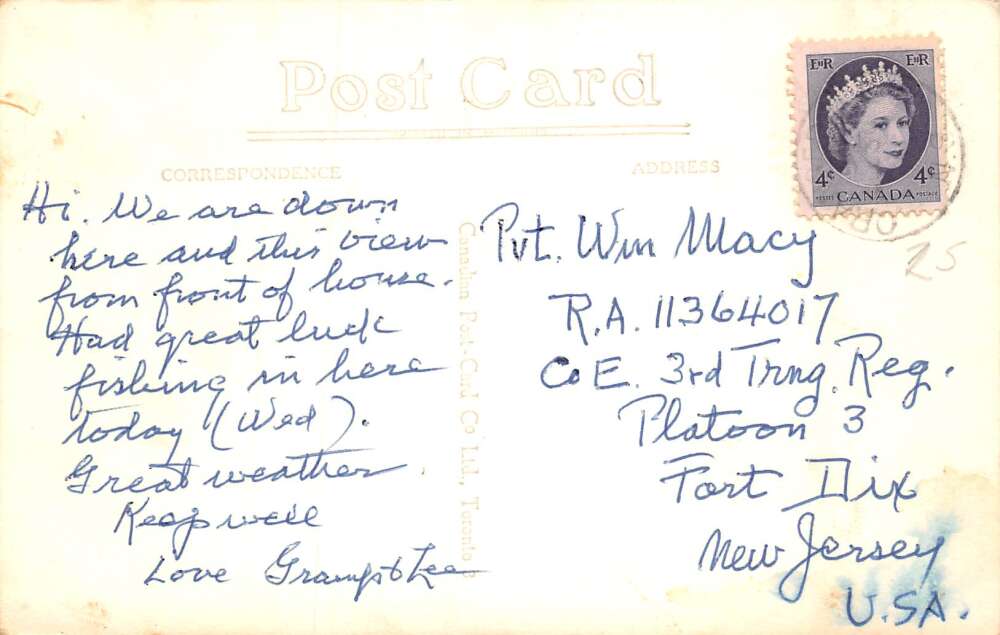 Post Card
CORRESPONDENCE
ADDRESS
EIIR EIIR
4¢ 4¢
POSTES CANADA POSTAGE
25
Hi. We are down
here and this view
from front of house.
Had great luck
fishing in here
today (Wed).
Great weather
Keep well
Love Gramps & Lee
Canadian Post Card Co Ltd., Toronto
Pvt. Wm Macy
R.A. 11364017
Co E. 3rd Trng. Reg.
Platoon 3
Fort Dix
New Jersey
U.S.A.